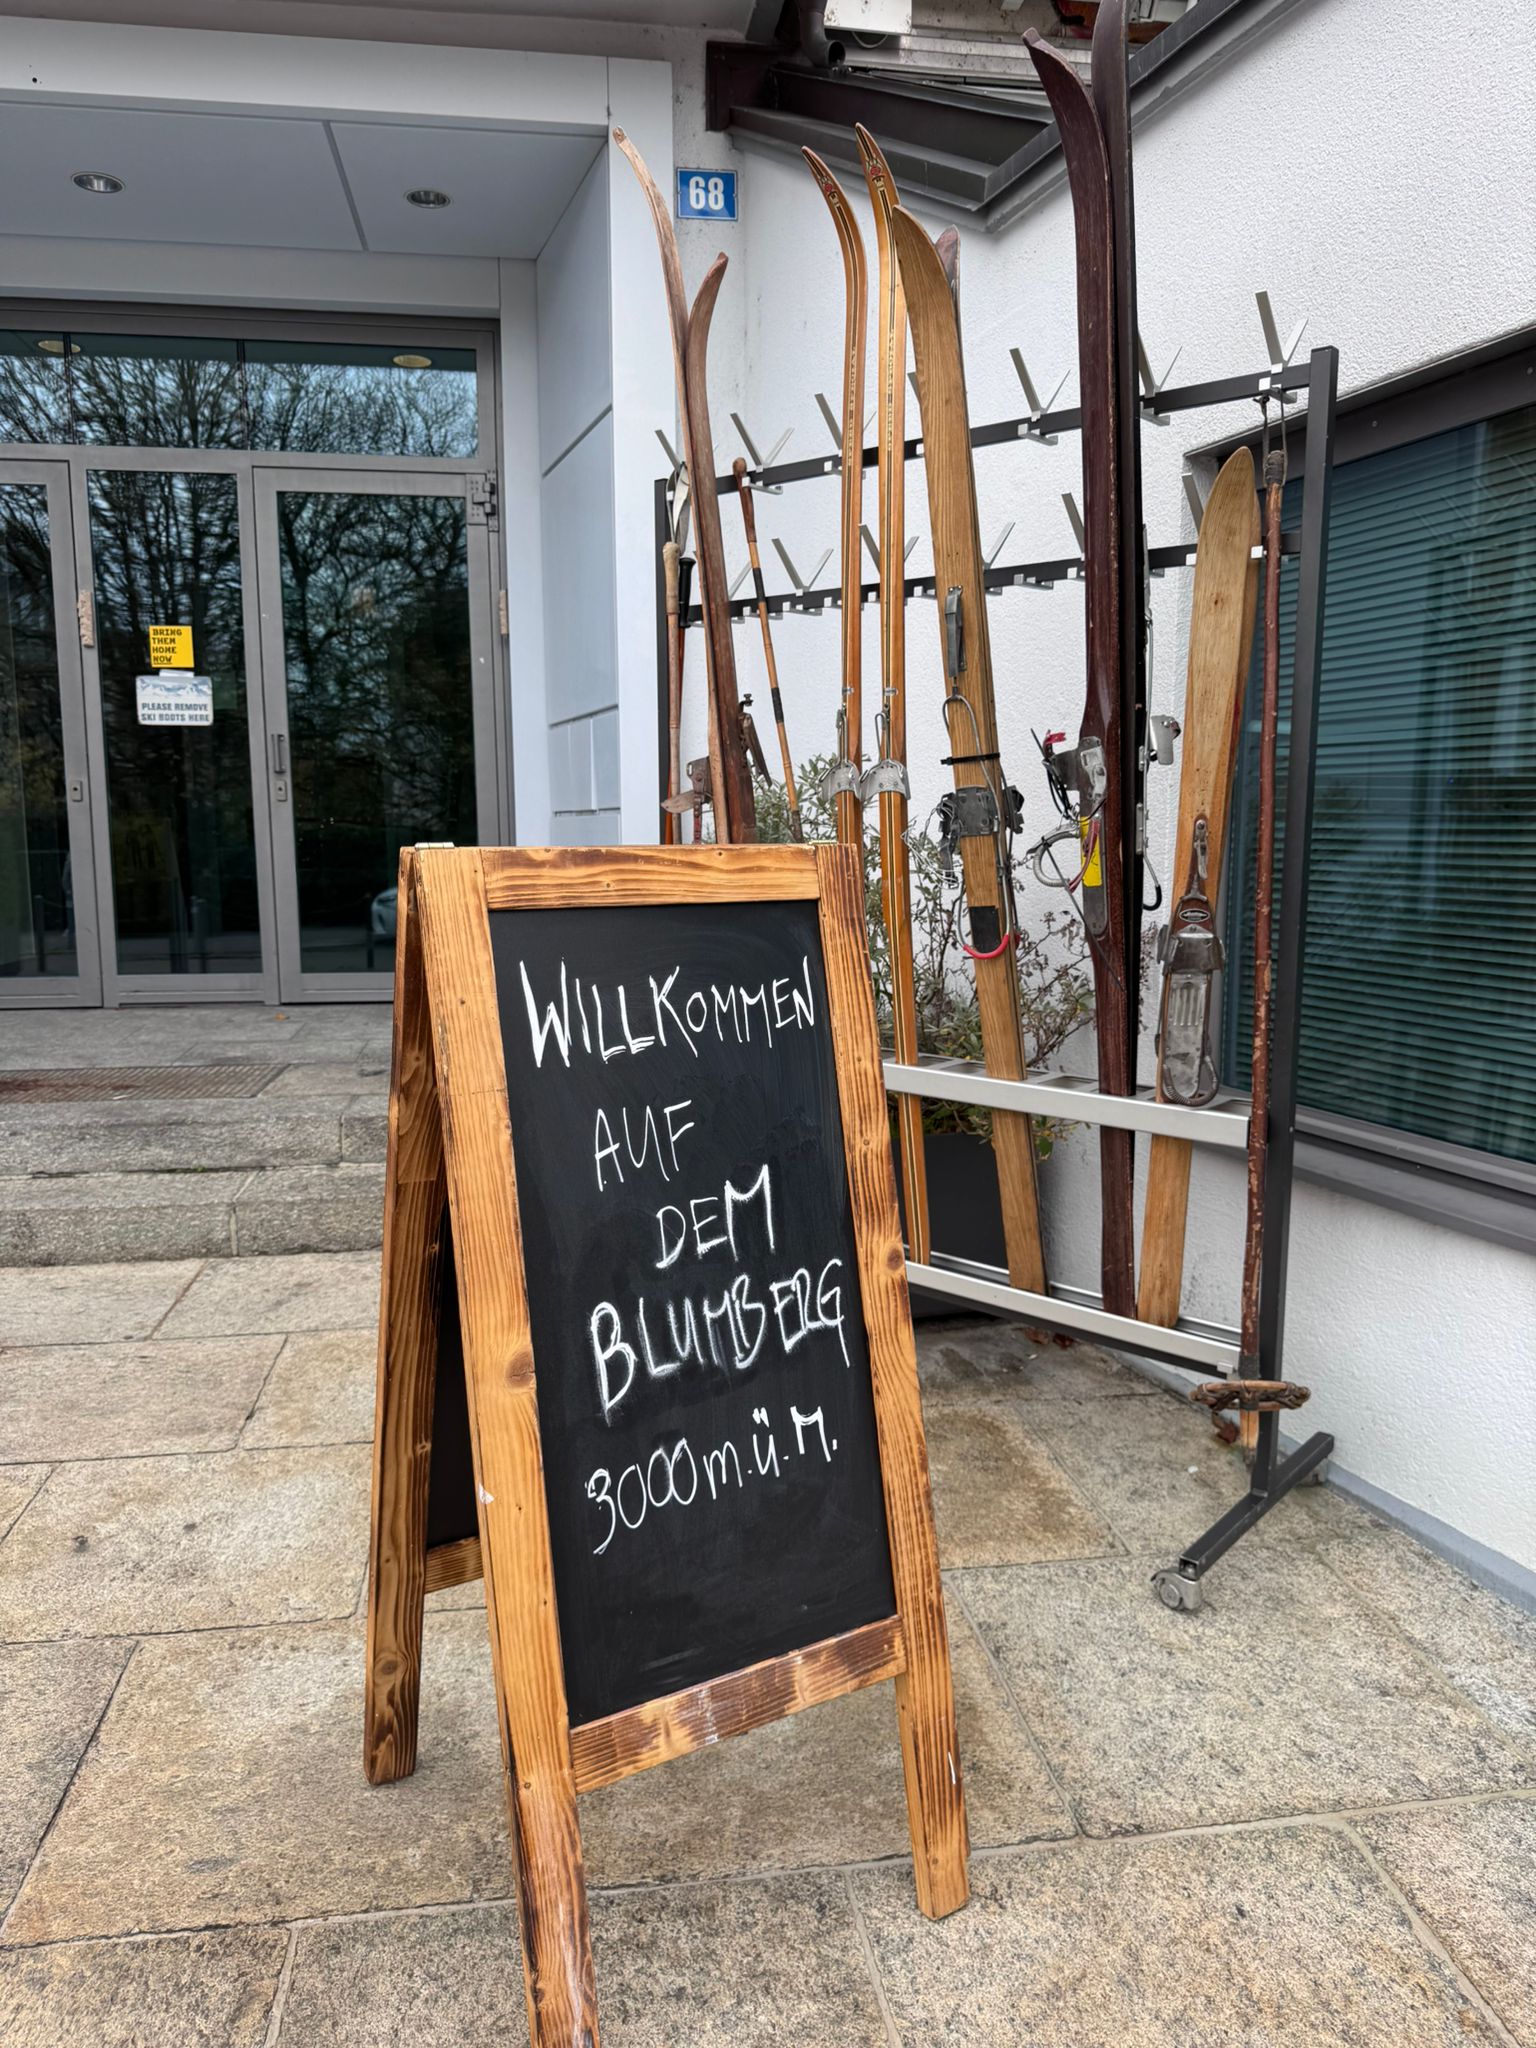 68
BRING
THEM
HOME
NOW
PLEASE REMOVE
SKI BOOTS HERE
WILLKOMMEN
AUF
DEM
BLUMBERG
3000 m.ü.M.